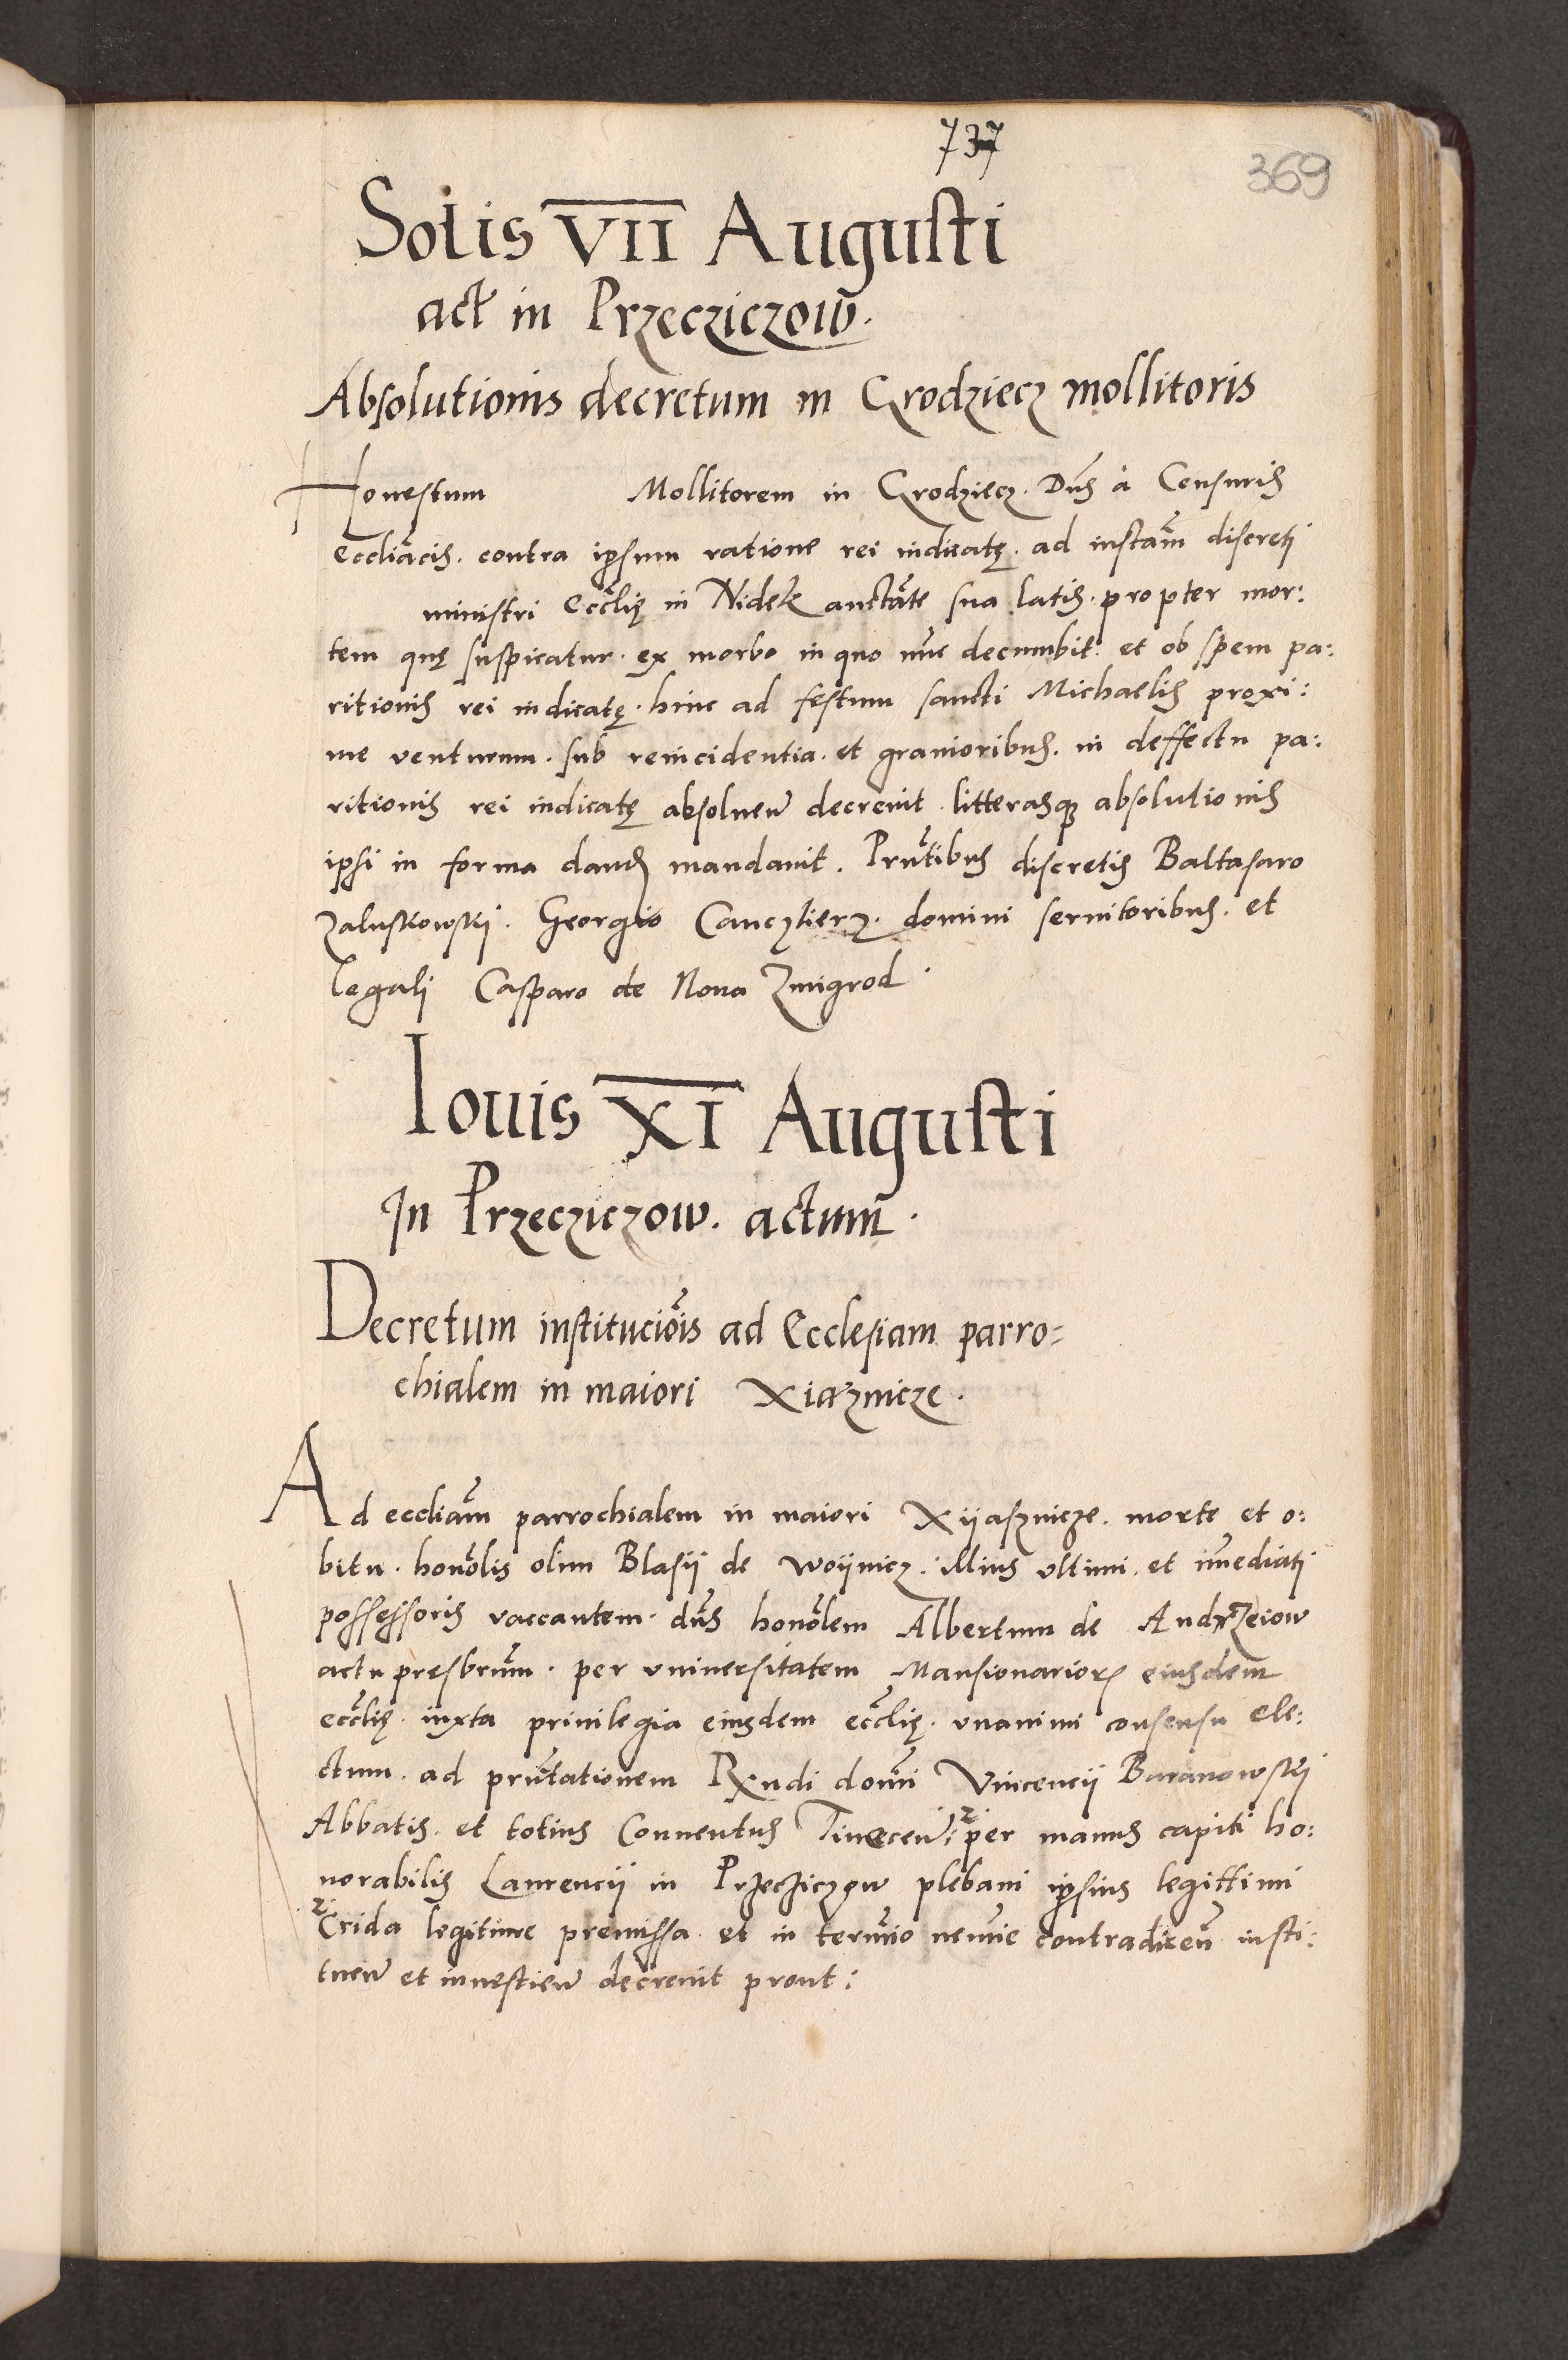 737
369
Solis VII Augusti
act in Przecziczow.
Absolutionis decretum in Grodziecz mollitoris
Honestum Mollitorem in Grodziecz. Dns à Censuris
eccliacis. contra ipsum ratione rei iudicatę. ad instam discreti
ministri ecclię in Nidek auctate sua latis. propter mor:
tem quę suspicatur. ex morbo in quo nuc decumbit. et ob spem pa:
ritionis rei iudicatę. hinc ad festum sancti Michaelis proxi:
me venturum. sub reincidentia. et grauioribus. in deffectu pa:
ritionis rei iudicatę absoluen decreuit. litterasque absolutionis
ipsi in forma dand mandauit. Prntibus discretis Baltasaro
Zaluskowskj. Georgio Canczlierz. domini seruitoribus. et
legali Casparo de Noua Zmigrod.
Iouis XI Augusti
In Przecziczow. actum.
Decretum instituciois ad Ecclesiam parro=
chialem in maiori Xiąznicze.
Ad eccliam parrochialem in maiori Xijasznicze. morte et o:
bitu. honolis olim Blasij de Woijnicz. illius vltimi. et imediatj
possessoris vaccantem. dns honolem Albertum de Andrzeiow
actu presbrum. per vniuersitatem Mansionarior eiusdem
ecclię. iuxta priuilegia eiusdem ecclię. vnanimi consensu ele:
ctum. ad prntationem Rxndi domi Vincencij Baranowskj
Abbatis. et totius Conuentus Tinecen: per manus capiti ho:
norabilis Laurencij in Przecziczow plebani ipsius legittimi
Crida legitime premissa. et in termio nemie contradicen insti:
tuen et inuestien decreuit prout: